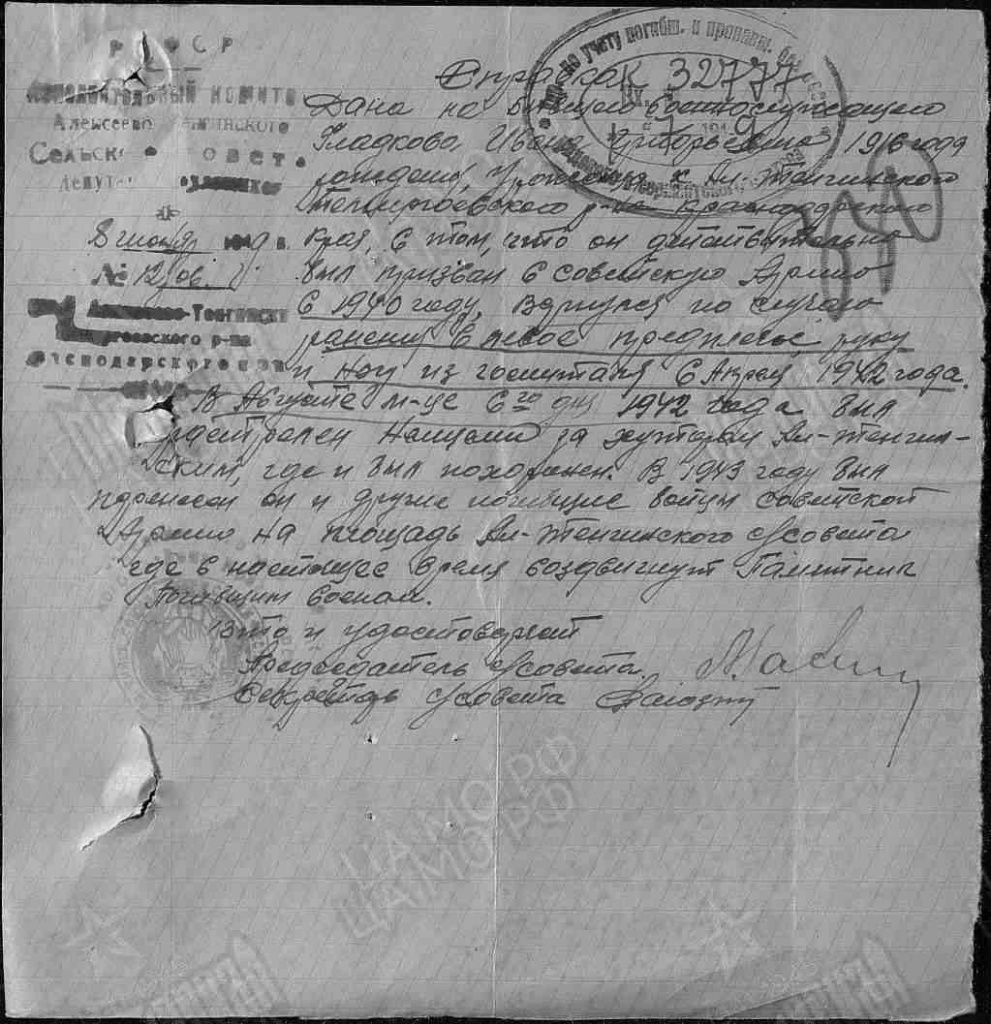 Р С Ф С Р
Исполнительный комитет
Алексеево-Тенгинского
Сельского Совета
8 июня 1949 г.
№ 12/06.
Алексеево-Тенгинский
Темиргоевского р-на
Краснодарского края
учету погибш. и пропавш. без
К 32777
Справка
Дана на бывшего военнослужащего
Гладкова Ивана Григорьевича 1916 года
рождения, урожен х. Ал-Тенгинского
Темиргоевского р-на Краснодарского
Края, в том, что он действительно
был призван в советскую Армию
в 1940 году, вернулся по случаю
ранения в левое предплечье, руку
и ногу из госпиталя 6 Апреля 1942 года.
В Августе м-це 6го дня 1942 года был
расстрелен немцами за хутором Ал-Тенгин-
ским, где и был похоронен. В 1943 году был
перенесен он и другие погибшие войны советской
Армии на площадь Ал-Тенгинского с/совета
где в настоящее время воздвигнут Памятник
Погибшим военам.
Что и удостоверяет
Председатель с/совета.
Секретарь с/совета
ЦАМО РФ
ЦАМО РФ